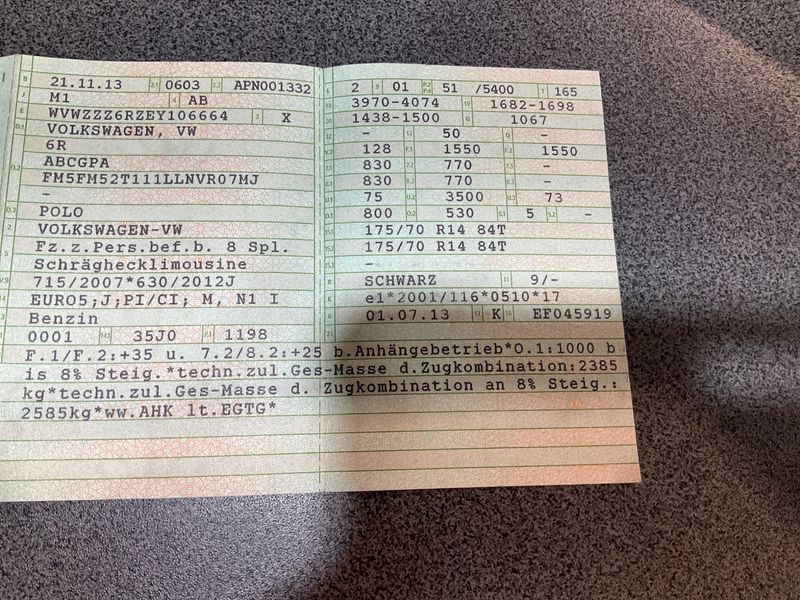 B 21.11.13 2.1 0603 2.2 APN001332
J M1 4 AB
E WVWZZZ6RZEY106664 3 X
D.1 VOLKSWAGEN, VW
6R
D.2 ABCGPA
FM5FM52T111LLNVR07MJ
-
D.3 POLO
2 VOLKSWAGEN-VW
5 Fz.z.Pers.bef.b. 8 Spl.
Schräghecklimousine
V.9 715/2007*630/2012J
14 EURO5;J;PI/CI; M, N1 I
P.3 Benzin
10 0001 14.1 35J0 P.1 1198
L 2 9 01 P.2 P.4 51 /5400 T 165
18 3970-4074 19 1682-1698
20 1438-1500 G 1067
12 - 13 50 Q -
V.7 128 F.1 1550 F.2 1550
7.1 830 7.2 770 7.3 -
8.1 830 8.2 770 8.3 -
U.1 75 U.2 3500 U.3 73
O.1 800 O.2 530 S.1 5 S.2 -
15.1 175/70 R14 84T
15.2 175/70 R14 84T
15.3 -
R SCHWARZ 11 9/-
K e1*2001/116*0510*17
6 01.07.13 17 K 16 EF045919
21
F.1/F.2:+35 u. 7.2/8.2:+25 b.Anhängebetrieb*O.1:1000 b
is 8% Steig.*techn.zul.Ges-Masse d.Zugkombination:2385
kg*techn.zul.Ges-Masse d. Zugkombination an 8% Steig.:
2585kg*ww.AHK lt.EGTG*